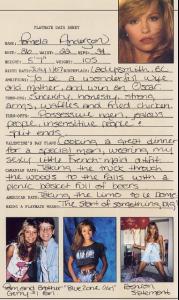 PLAYMATE DATA SHEET
NAME: Pamela Anderson
BUST: WAIST: 22 HIPS:
HEIGHT: 5'7" WEIGHT: 105
BIRTH DATE: BIRTHPLACE: Ladysmith, BC
AMBITIONS: To be a wonderful wife
and mother and win an Oscar
TURN-ONS: Sincerity, honesty, strong
arms, waffles and fried chicken
TURN-OFFS: Possessive men, jealous
people, insensitive people &
split ends
VALENTINE'S DAY Cooking a great dinner
for a special man, wearing my
sexy little French maid outfit
CANADIAN DATE: Taking the truck through
the woods to the falls with a
picnic basket full of beers
AMERICAN DATE: Taking the limo to Le Dome
BEING A PLAYMATE The start of something big
Me and brother
Gerry
"Blue Zone Girl"
Fashion
Statement